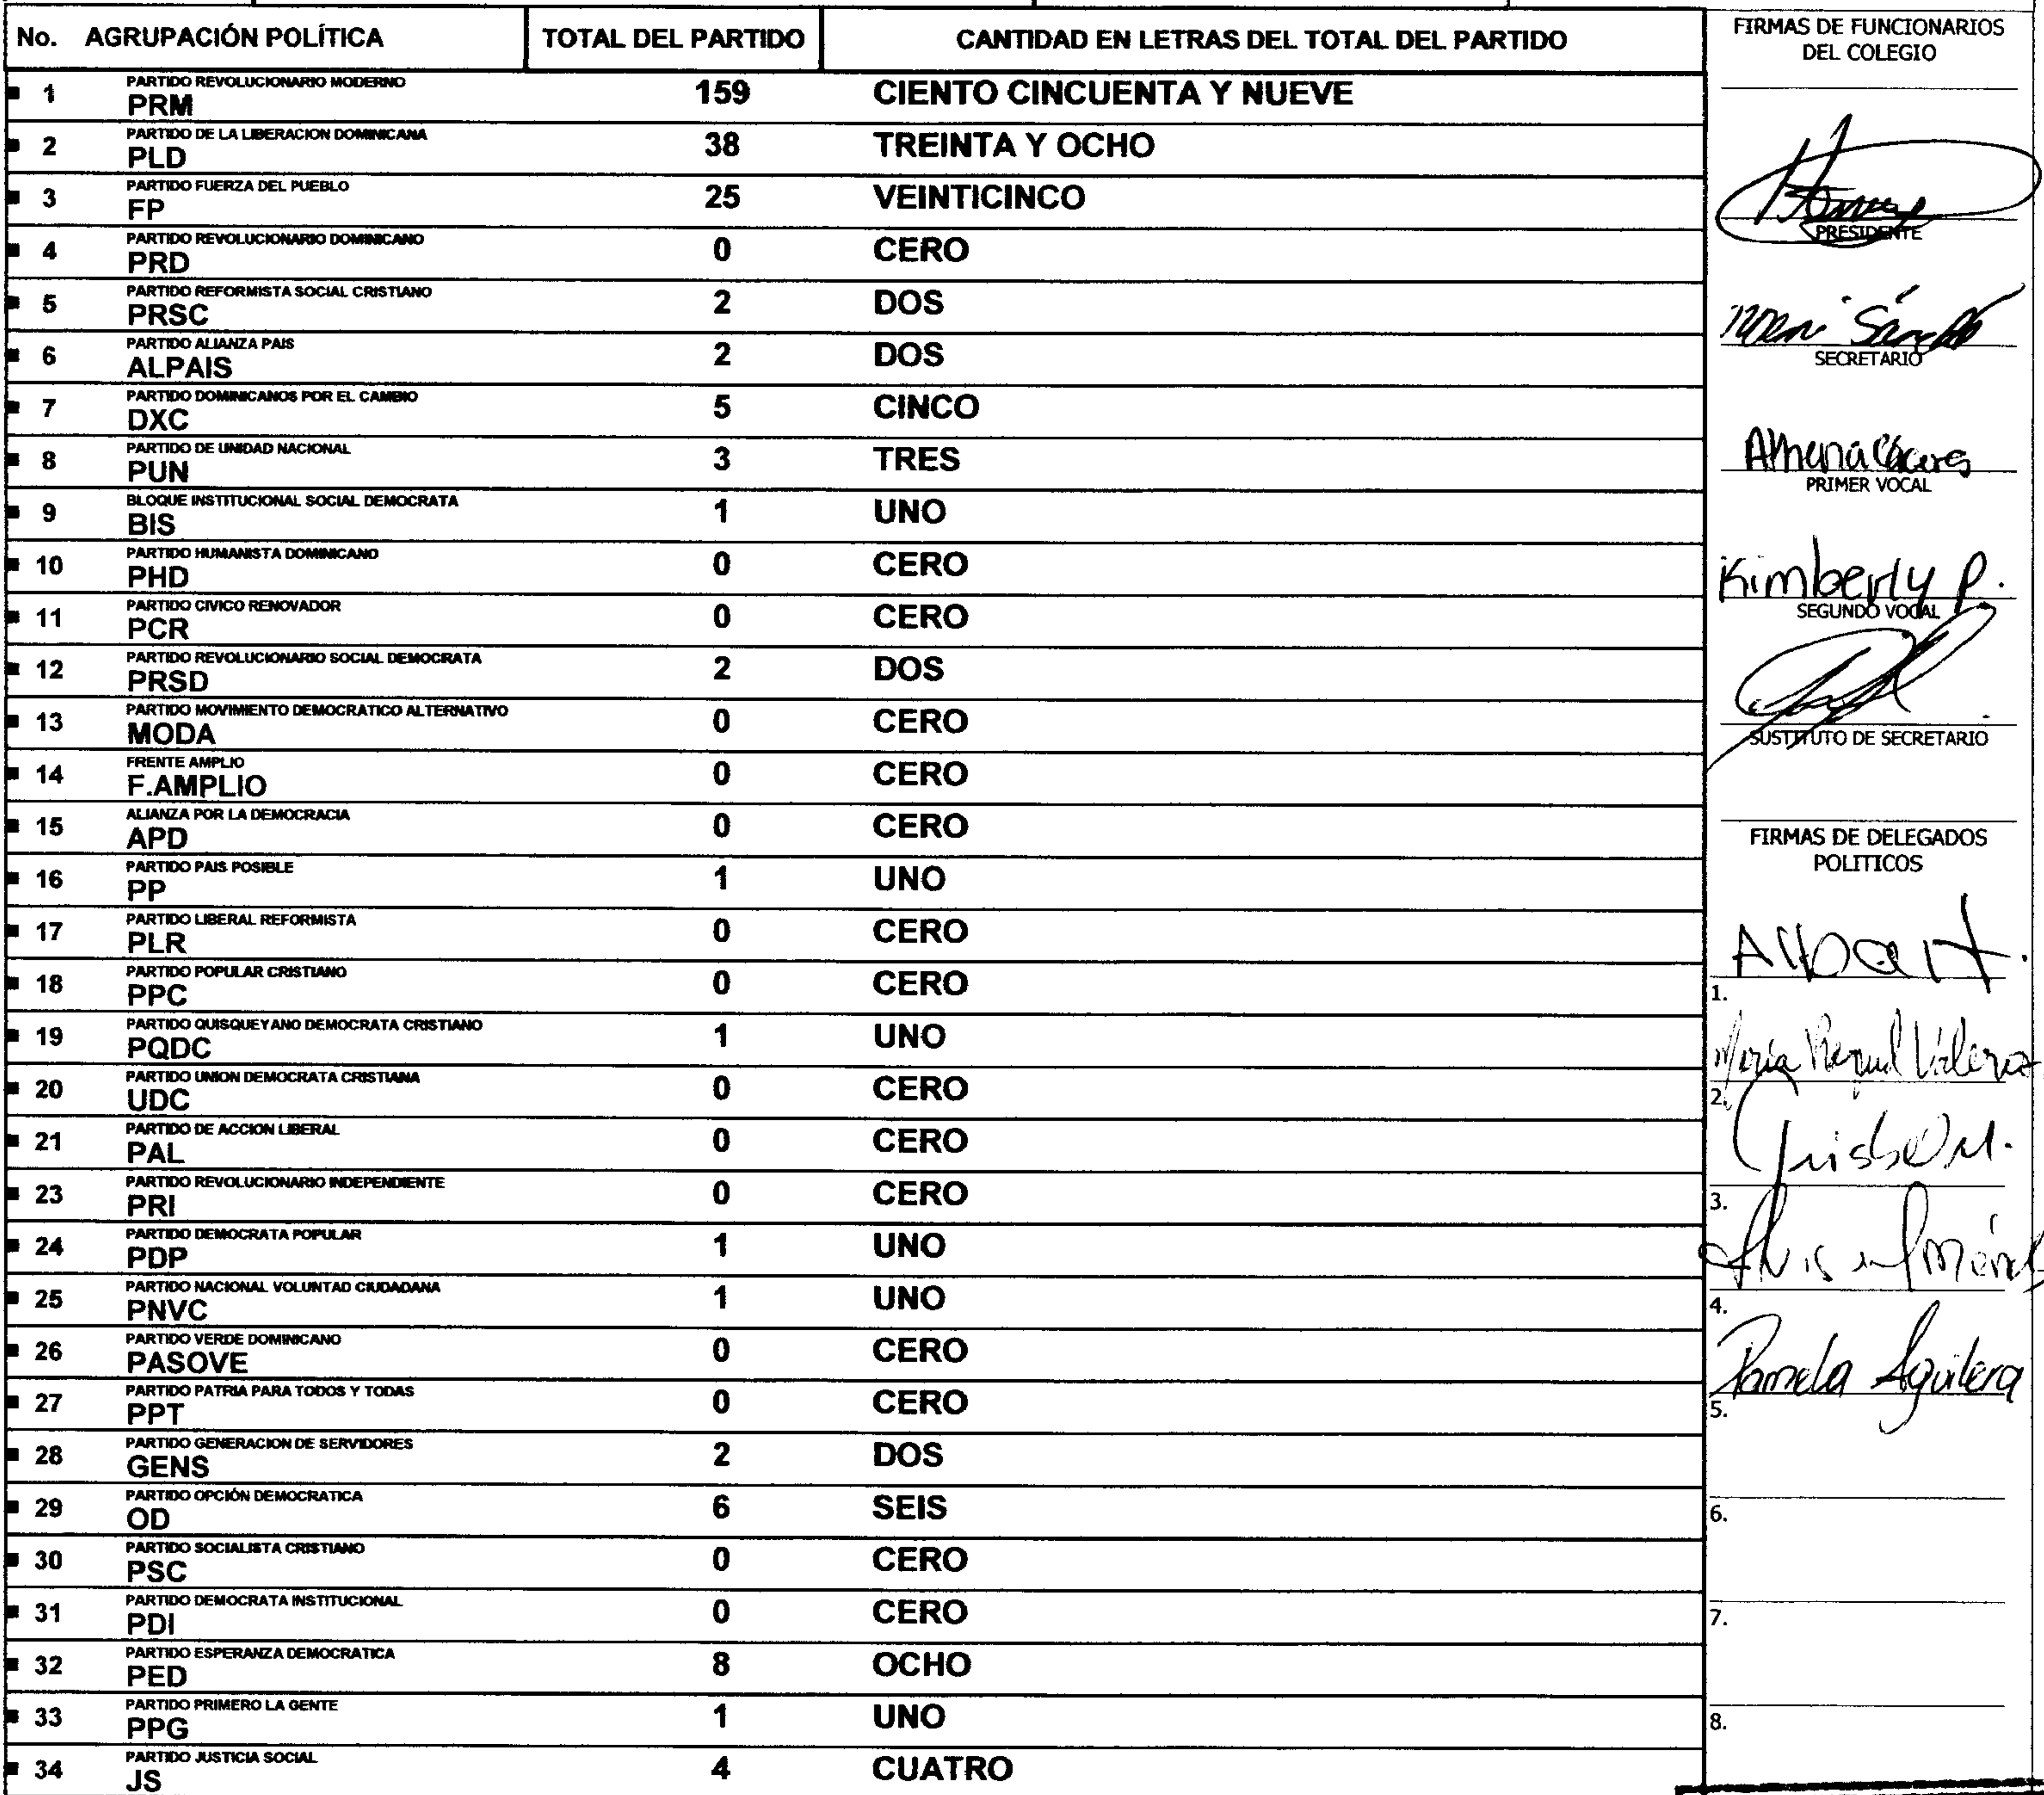 No. AGRUPACIÓN POLÍTICA TOTAL DEL PARTIDO CANTIDAD EN LETRAS DEL TOTAL DEL PARTIDO
PARTIDO REVOLUCIONARIO MODERNO
1 PRM 159 CIENTO CINCUENTA Y NUEVE
PARTIDO DE LA LIBERACION DOMINICANA
2 PLD 38 TREINTA Y OCHO
PARTIDO FUERZA DEL PUEBLO
3 FP 25 VEINTICINCO
PARTIDO REVOLUCIONARIO DOMINICANO
4 PRD 0 CERO
PARTIDO REFORMISTA SOCIAL CRISTIANO
5 PRSC 2 DOS
PARTIDO ALIANZA PAIS
6 ALPAIS 2 DOS
PARTIDO DOMINICANOS POR EL CAMBIO
7 DXC 5 CINCO
PARTIDO DE UNIDAD NACIONAL
8 PUN 3 TRES
BLOQUE INSTITUCIONAL SOCIAL DEMOCRATA
9 BIS 1 UNO
PARTIDO HUMANISTA DOMINICANO
10 PHD 0 CERO
PARTIDO CIVICO RENOVADOR
11 PCR 0 CERO
PARTIDO REVOLUCIONARIO SOCIAL DEMOCRATA
12 PRSD 2 DOS
PARTIDO MOVIMIENTO DEMOCRATICO ALTERNATIVO
13 MODA 0 CERO
FRENTE AMPLIO
14 F.AMPLIO 0 CERO
ALIANZA POR LA DEMOCRACIA
15 APD 0 CERO
PARTIDO PAIS POSIBLE
16 PP 1 UNO
PARTIDO LIBERAL REFORMISTA
17 PLR 0 CERO
PARTIDO POPULAR CRISTIANO
18 PPC 0 CERO
PARTIDO QUISQUEYANO DEMOCRATA CRISTIANO
19 PQDC 1 UNO
PARTIDO UNION DEMOCRATA CRISTIANA
20 UDC 0 CERO
PARTIDO DE ACCION LIBERAL
21 PAL 0 CERO
PARTIDO REVOLUCIONARIO INDEPENDIENTE
23 PRI 0 CERO
PARTIDO DEMOCRATA POPULAR
24 PDP 1 UNO
PARTIDO NACIONAL VOLUNTAD CIUDADANA
25 PNVC 1 UNO
PARTIDO VERDE DOMINICANO
26 PASOVE 0 CERO
PARTIDO PATRIA PARA TODOS Y TODAS
27 PPT 0 CERO
PARTIDO GENERACION DE SERVIDORES
28 GENS 2 DOS
PARTIDO OPCIÓN DEMOCRATICA
29 OD 6 SEIS
PARTIDO SOCIALISTA CRISTIANO
30 PSC 0 CERO
PARTIDO DEMOCRATA INSTITUCIONAL
31 PDI 0 CERO
PARTIDO ESPERANZA DEMOCRATICA
32 PED 8 OCHO
PARTIDO PRIMERO LA GENTE
33 PPG 1 UNO
PARTIDO JUSTICIA SOCIAL
34 JS 4 CUATRO
FIRMAS DE FUNCIONARIOS
DEL COLEGIO
PRESIDENTE
SECRETARIO
Athena Cáceres
PRIMER VOCAL
Kimberly P.
SEGUNDO VOCAL
SUSTITUTO DE SECRETARIO
FIRMAS DE DELEGADOS
POLITICOS
1.
María
2.
3.
4.
Pamela Aguilera
5.
6.
7.
8.